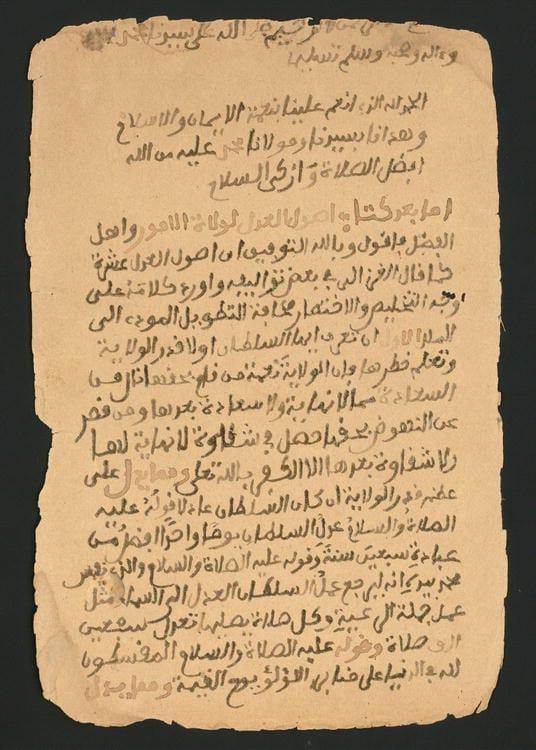 الرحيم صلى الله على سيدنا محمد
وءاله وصحبه وسلم تسليما
الحمد لله الذي انعم علينا بنعمة الايمان والاسلام
وهدانا بسيدنا ومولانا محمد عليه من الله
افضل الصلاة وازكى السلام
اما بعد كتاب اصول العدل لولاة الامور واهل
الفضل فاقول وبالله التوفيق ان اصول العدل عشرة
كما قال الغزالي في بعض تواليفه واورد كلامه على
وجه التلخيص والاختصار مخافة التطويل المودي الى
الملل الاول ان تعرف ايها السلطان اولا قدر الولاية
وتعلم خطرها وان الولاية نعمة من قام بحقها نال من
السعادة ما لا نهاية ولا سعادة بعدها ومن قصر
عن النهوض بحقها حصل في شقاوة لا نهاية لها
ولا شقاوة بعدها الا الكفر بالله تعلى ومما يدل على
عظم قدر الولاية ان كان السلطان عادلا قوله عليه
الصلاة والسلام عدل السلطان يوما واحدا افضل من
عبادة سبعين سنة وقوله عليه الصلاة والسلام والذي نفس
محمد بيده انه ليرجع عمل السلطان العدل الى السماء مثل
عمل جملة الرعية وكل صلاة يصليها تعدل سبعين
الف صلاة وقوله عليه الصلاة والسلام المقسطون
لله في الدنيا على منابر اللؤلؤ يوم القيمة ومما يدل